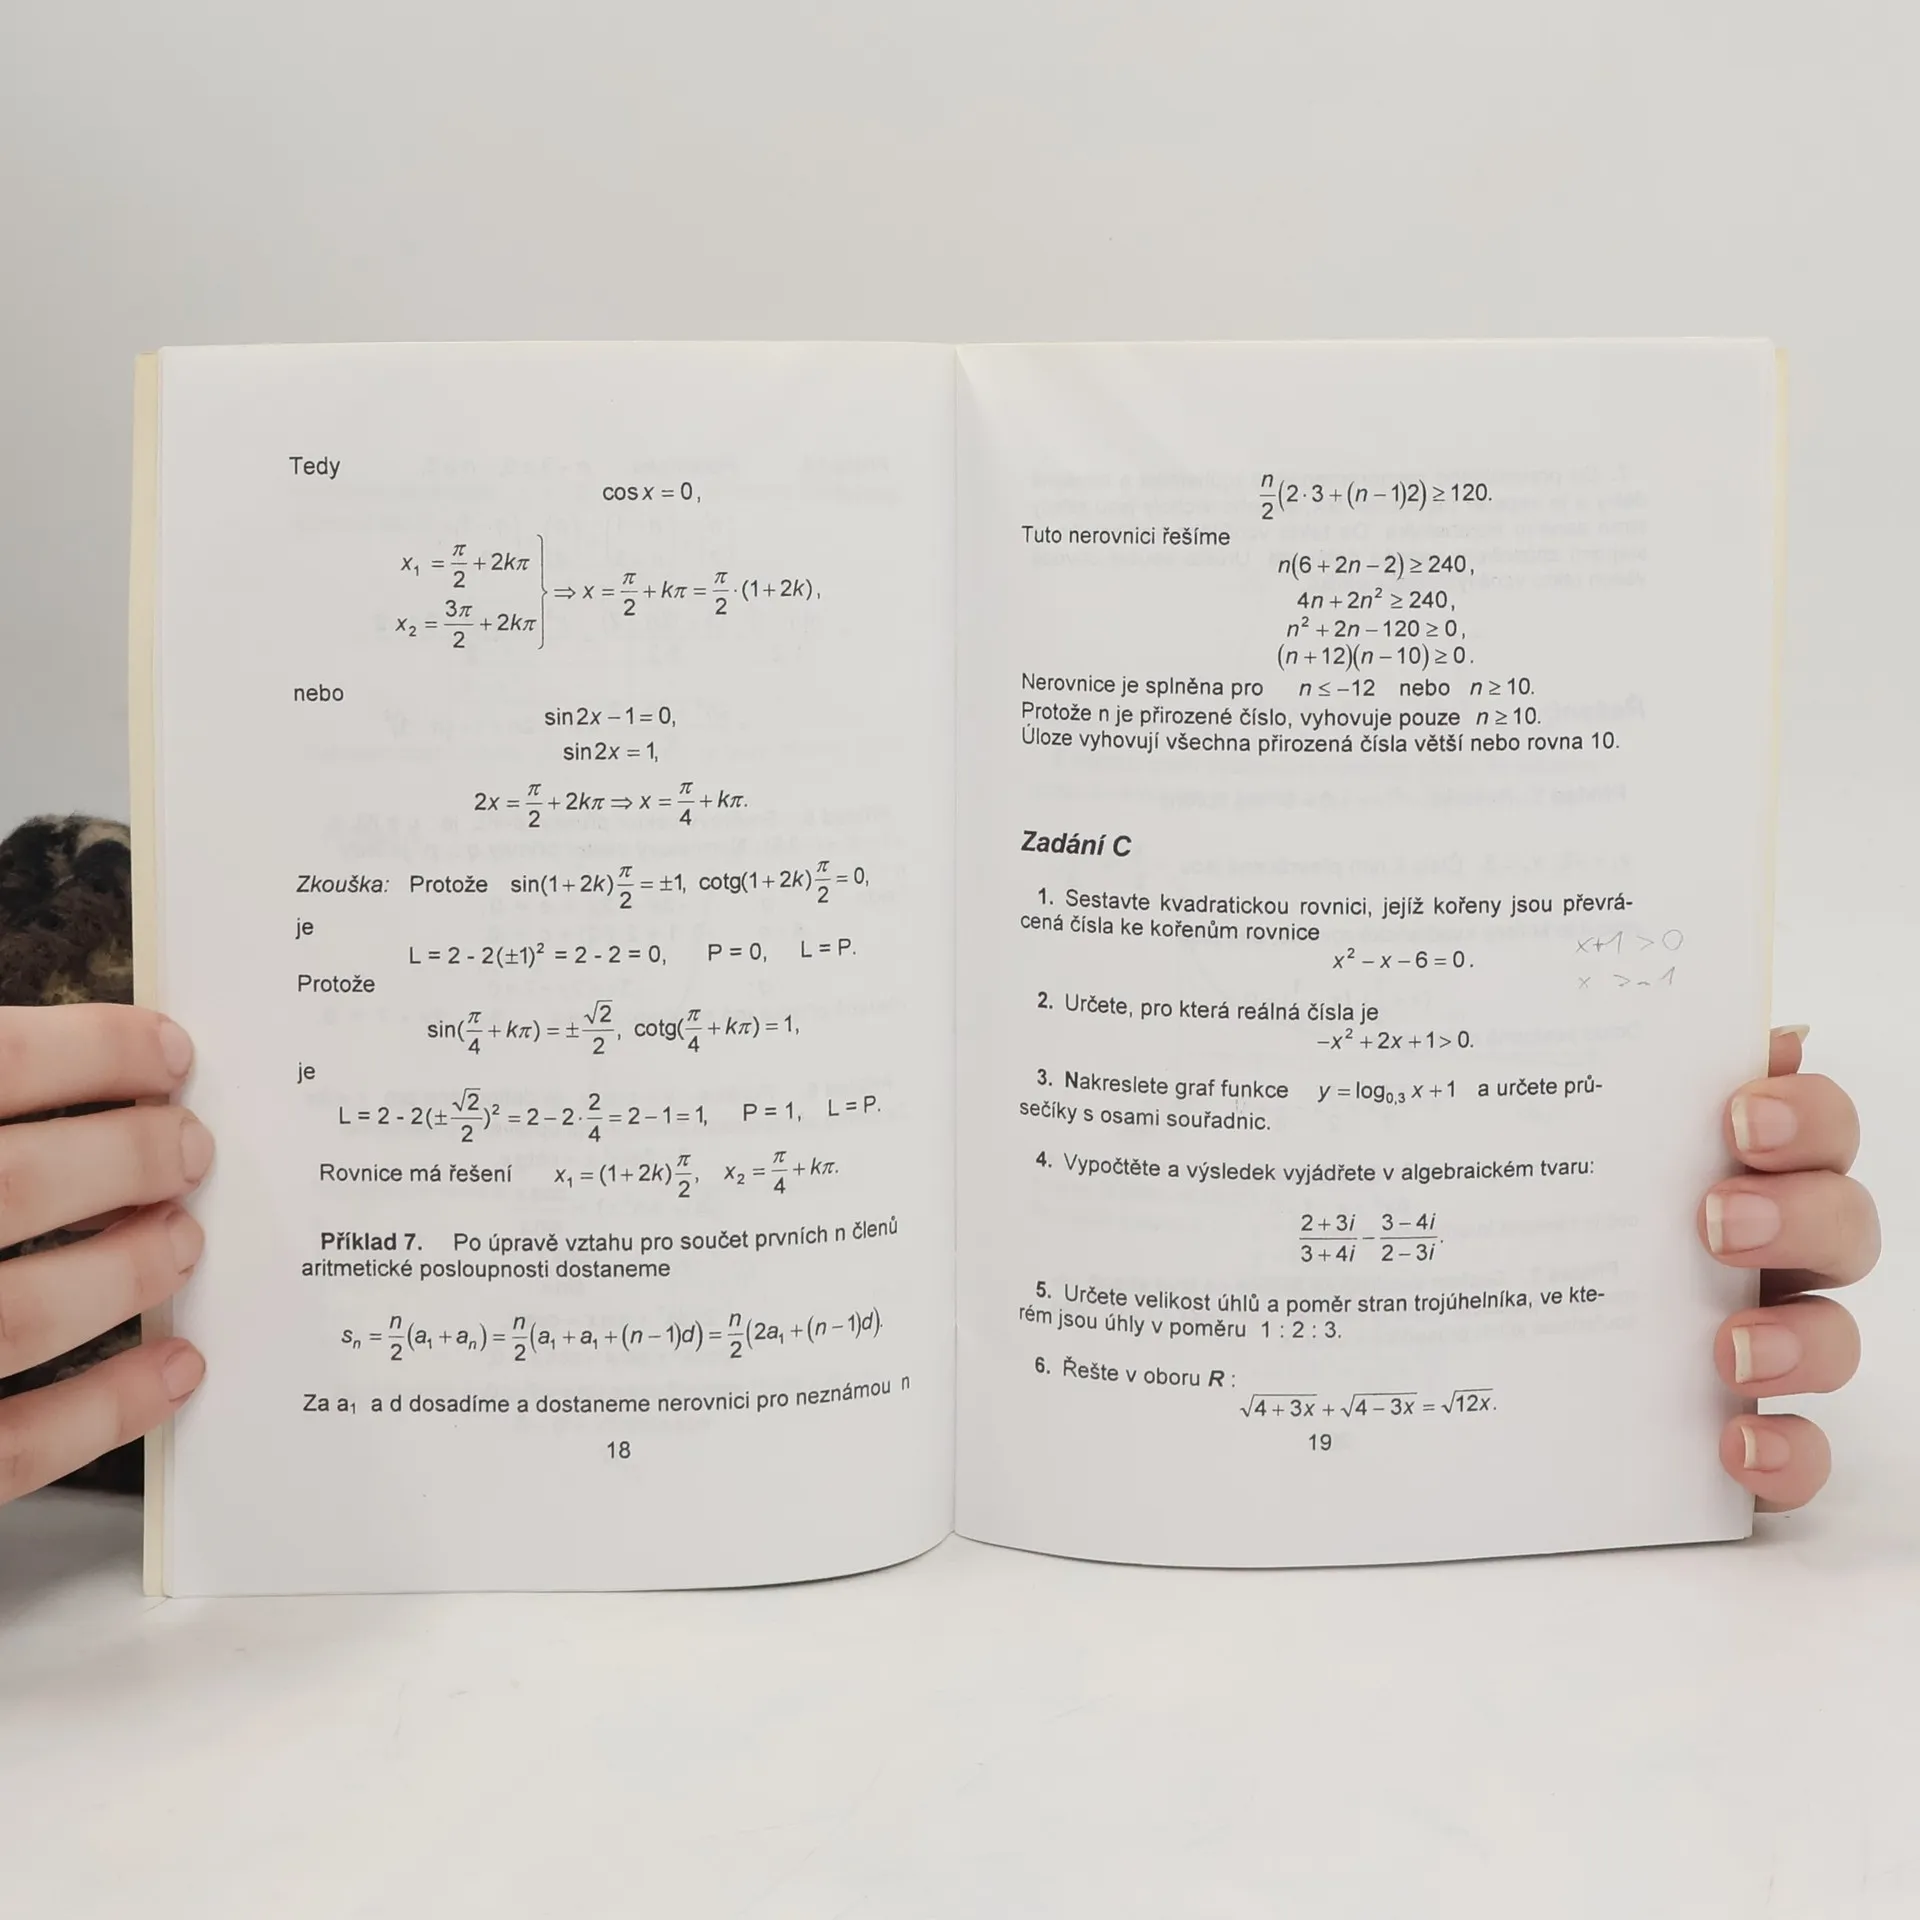 Tedy
cos x = 0,
x₁ = π/2 + 2kπ
x₂ = 3π/2 + 2kπ } ⇒ x = π/2 + kπ = π/2 · (1+2k),
nebo
sin 2x − 1 = 0,
sin 2x = 1,
2x = π/2 + 2kπ ⇒ x = π/4 + kπ.
Zkouška: Protože sin(1+2k)π/2 = ±1, cotg(1+2k)π/2 = 0,
je
L = 2 - 2(±1)² = 2 - 2 = 0, P = 0, L = P.
Protože
sin(π/4 + kπ) = ±√2/2, cotg(π/4 + kπ) = 1,
je
L = 2 - 2(±√2/2)² = 2 − 2·2/4 = 2 − 1 = 1, P = 1, L = P.
Rovnice má řešení x₁ = (1+2k)π/2, x₂ = π/4 + kπ.
Příklad 7. Po úpravě vztahu pro součet prvních n členů
aritmetické posloupnosti dostaneme
sₙ = n/2(a₁ + aₙ) = n/2(a₁ + a₁ + (n−1)d) = n/2(2a₁ + (n−1)d).
Za a₁ a d dosadíme a dostaneme nerovnici pro neznámou n
18
n/2(2·3 + (n−1)2) ≥ 120.
Tuto nerovnici řešíme
n(6 + 2n − 2) ≥ 240,
4n + 2n² ≥ 240,
n² + 2n − 120 ≥ 0,
(n + 12)(n − 10) ≥ 0.
Nerovnice je splněna pro n ≤ −12 nebo n ≥ 10.
Protože n je přirozené číslo, vyhovuje pouze n ≥ 10.
Úloze vyhovují všechna přirozená čísla větší nebo rovna 10.
Zadání C
1. Sestavte kvadratickou rovnici, jejíž kořeny jsou převrá-
cená čísla ke kořenům rovnice
x² − x − 6 = 0.
x+1 > 0
x > −1
2. Určete, pro která reálná čísla je
−x² + 2x + 1 > 0.
3. Nakreslete graf funkce y = log₀,₃ x + 1 a určete prů-
sečíky s osami souřadnic.
4. Vypočtěte a výsledek vyjádřete v algebraickém tvaru:
(2+3i)/(3+4i) − (3−4i)/(2−3i).
5. Určete velikost úhlů a poměr stran trojúhelníka, ve kte-
rém jsou úhly v poměru 1 : 2 : 3.
6. Řešte v oboru R :
√(4+3x) + √(4−3x) = √(12x).
19